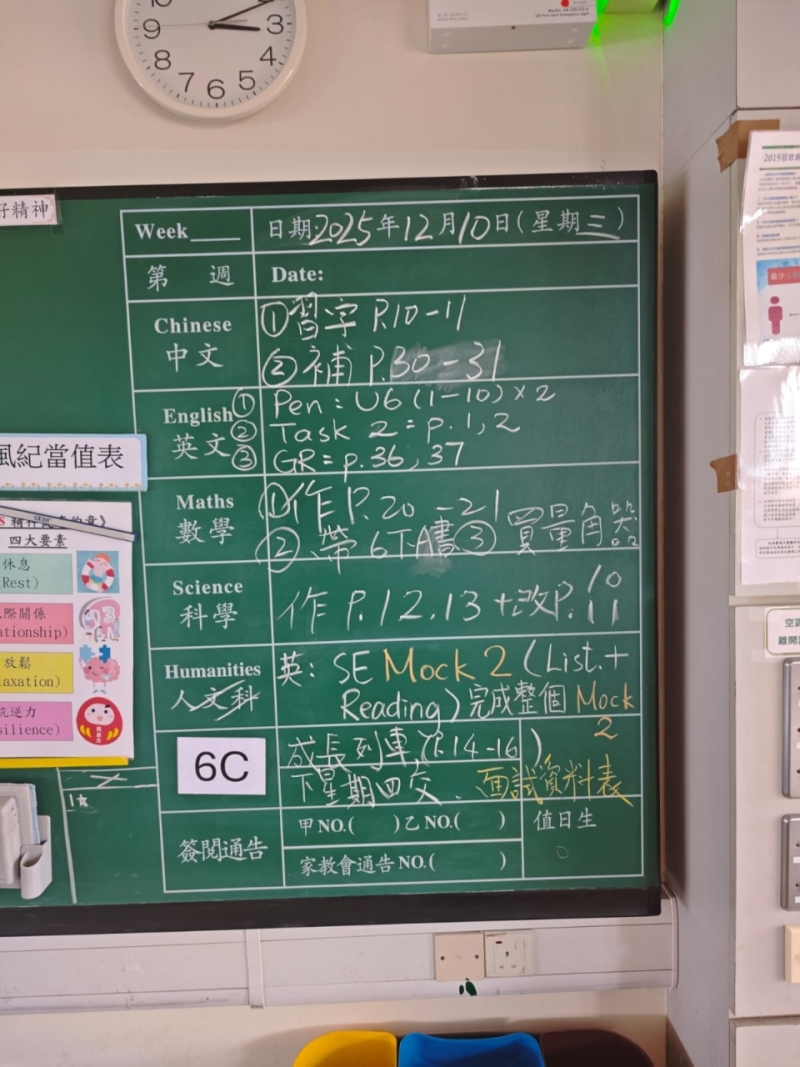 10
2
3
4
5
6
7
8
9
好精神
Week____ 日期:2025年12月10日(星期三)
第 週 Date:
Chinese ①習字 P.10-11
中文 ②補 P.30-31
English ① Pen: U6 (1-10) x 2
英文 ② Task 2: p.1, 2
③ GR: p.36, 37
Maths ①作 P.20-21
數學 ② 帶6下A書 ③ 買量角器
Science 科學 作 P.12,13 +改P.10
11
Humanities 英: SE Mock 2 (List.+
人文科 Reading) 完成整個 Mock
2
6C 成長列車(P.14-16)
下星期四交. 面試資料表
簽閱通告 甲NO.( )乙NO.( ) 值日生
家教會通告NO.( )
風紀當值表
四大要素
休息
(Rest)
人際關係
放鬆
抗逆力
1
2019冠狀
空調
離開